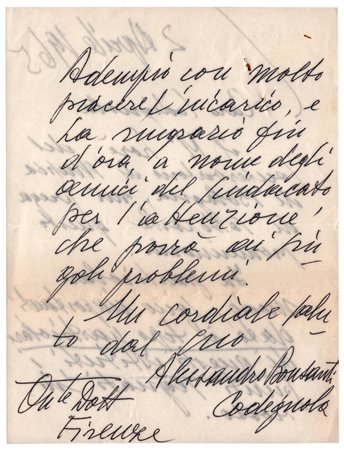 Adempio con molto
piacere l'incarico, e
La ringrazio fin
d'ora a nome degli
amici del sindacato
per l'attenzione,
che porrà ai sin-
goli problemi.
Un cordiale salu-
to dal Suo
Alessandro Bonsanti
Codignola
On.le Dott
Firenze